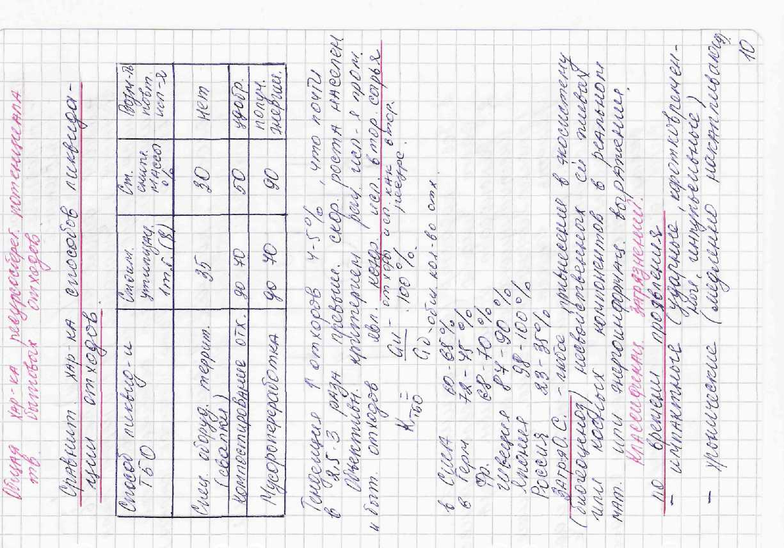 Общая хар-ка ресурсосберег. потенциала
тв бытовых отходов
Сравнит хар-ка способов ликвида-
ции отходов.
Способ ликвид-и ТБО | Стоим. утилизир. 1т.б. (В) | Ст. сниж. массы % | Возм-ть повт. исп-я
Спец. оборуд. террит. (свалки) | 35 | 30 | нет
компостирование отх. | до 70 | 50 | удобр.
Мусоропереработка | до 70 | 90 | получ. энергии.
Тенденция р отходов 4-5%, что почти
в 2,5-3 раза превыш. скор. роста населен
Объективн. критерием рац. исп-я пром.
и быт. отходов явл. коэф. исп. втор. сырья
K тбо = Gи отходы исп. как втор. ресурс. · 100%
Gо - общ. кол-во отх.
в США 60-65%
в Герм 72-75%
Фр. 68-70%
Швеция 84-90%
Япония 98-100%
Россия 23-35%
Загр. О.С. - любое привнесение в экосистему
(биогеоценоз) несвойственных ей живых
или косных компонентов в реальном
мат. или энергоинформ. выражении.
Классификац. загрязнений.
по времени проявления
- импактные (ударные, кратковремен-
ные, импульсивные)
- хронические (медленно накапливающ)
10